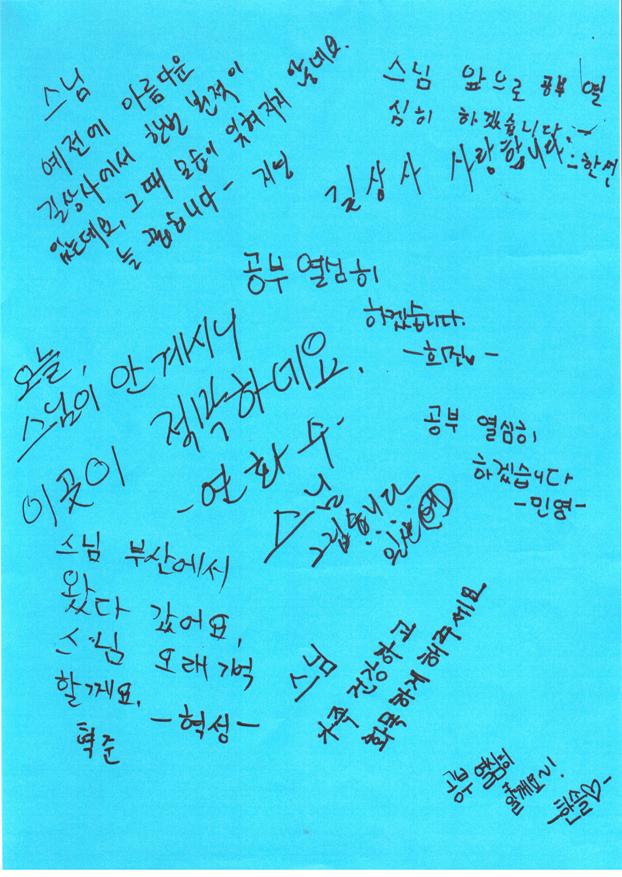 스님
예전에 아름다운
길상사에서 한번 뵌적이
있는데요, 그때 모습이 잊혀지지 않네요.
늘 뵙습니다 - 지영
스님 앞으로 공부 열
심히 하겠습니다.
길상사 사랑합니다.
공부 열심히
하겠습니다.
오늘,
스님이 안 계시니
이곳이 적막하네요.
-연화수-
공부 열심히
하겠습니다
-민영-
스님
그립습니다
스님 부산에서
왔다 갔어요,
스님 오래 기억
할게요.
-혁성-
혁준
스님
가족 건강하고
화목하게 해주세요
공부 열심히
할게요~!
한솔♡-